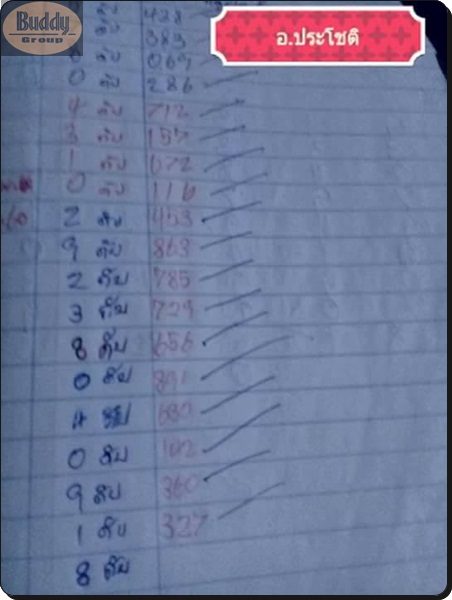 Buddy
Group
อ.ประโชติ
ดับ 428
ดับ 383
ดับ 069
0 ดับ 286
4 ดับ 712
3 ดับ 157
1 ดับ 672
0 ดับ 116
2 ดับ 453
9 ดับ 863
2 ดับ 785
3 ดับ 729
8 ดับ 656
0 ดับ 891
4 ดับ
0 ดับ 102
9 ดับ 360
1 ดับ 327
8 ดับ